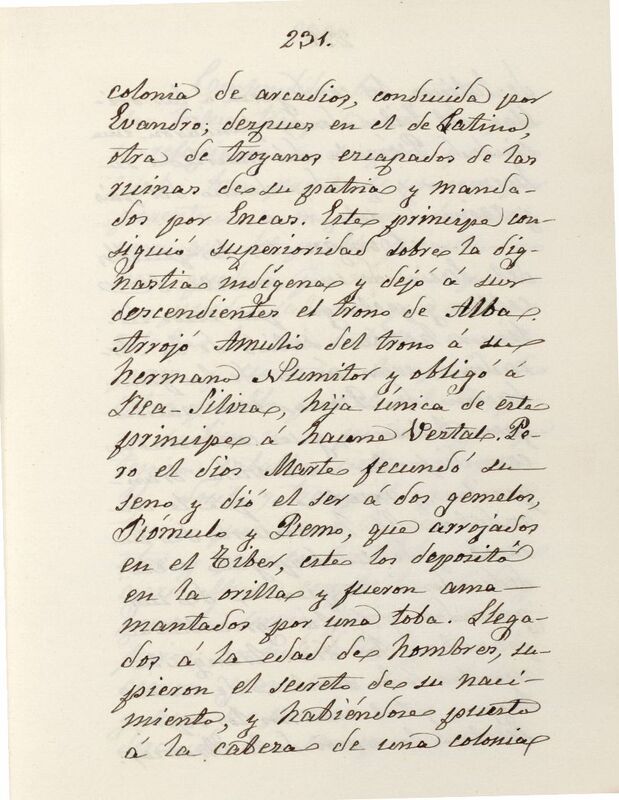 231.
colonia de arcadios, conducida por
Evandro; despues en el de Latino,
otra de troyanos escapados de las
ruinas de su patria y manda-
dos por Eneas. Este principe con-
siguió superioridad sobre la dig-
nastia indígena y dejó á sus
descendientes el trono de Alba.
Arrojó Amulio del trono á su
hermano Numitor y obligó á
Rea-Silvia, hija única de este
principe á hacerse Vestal. Pe-
ro el dios Marte fecundó su
seno y dió el ser á dos gemelos,
Rómulo y Remo, que arrojados
en el Tiber, este los depositó
en la orilla y fueron ama-
mantados por una loba. Llega-
dos á la edad de hombres, su-
pieron el secreto de su naci-
miento, y habiéndose puesto
á la cabeza de una colonia